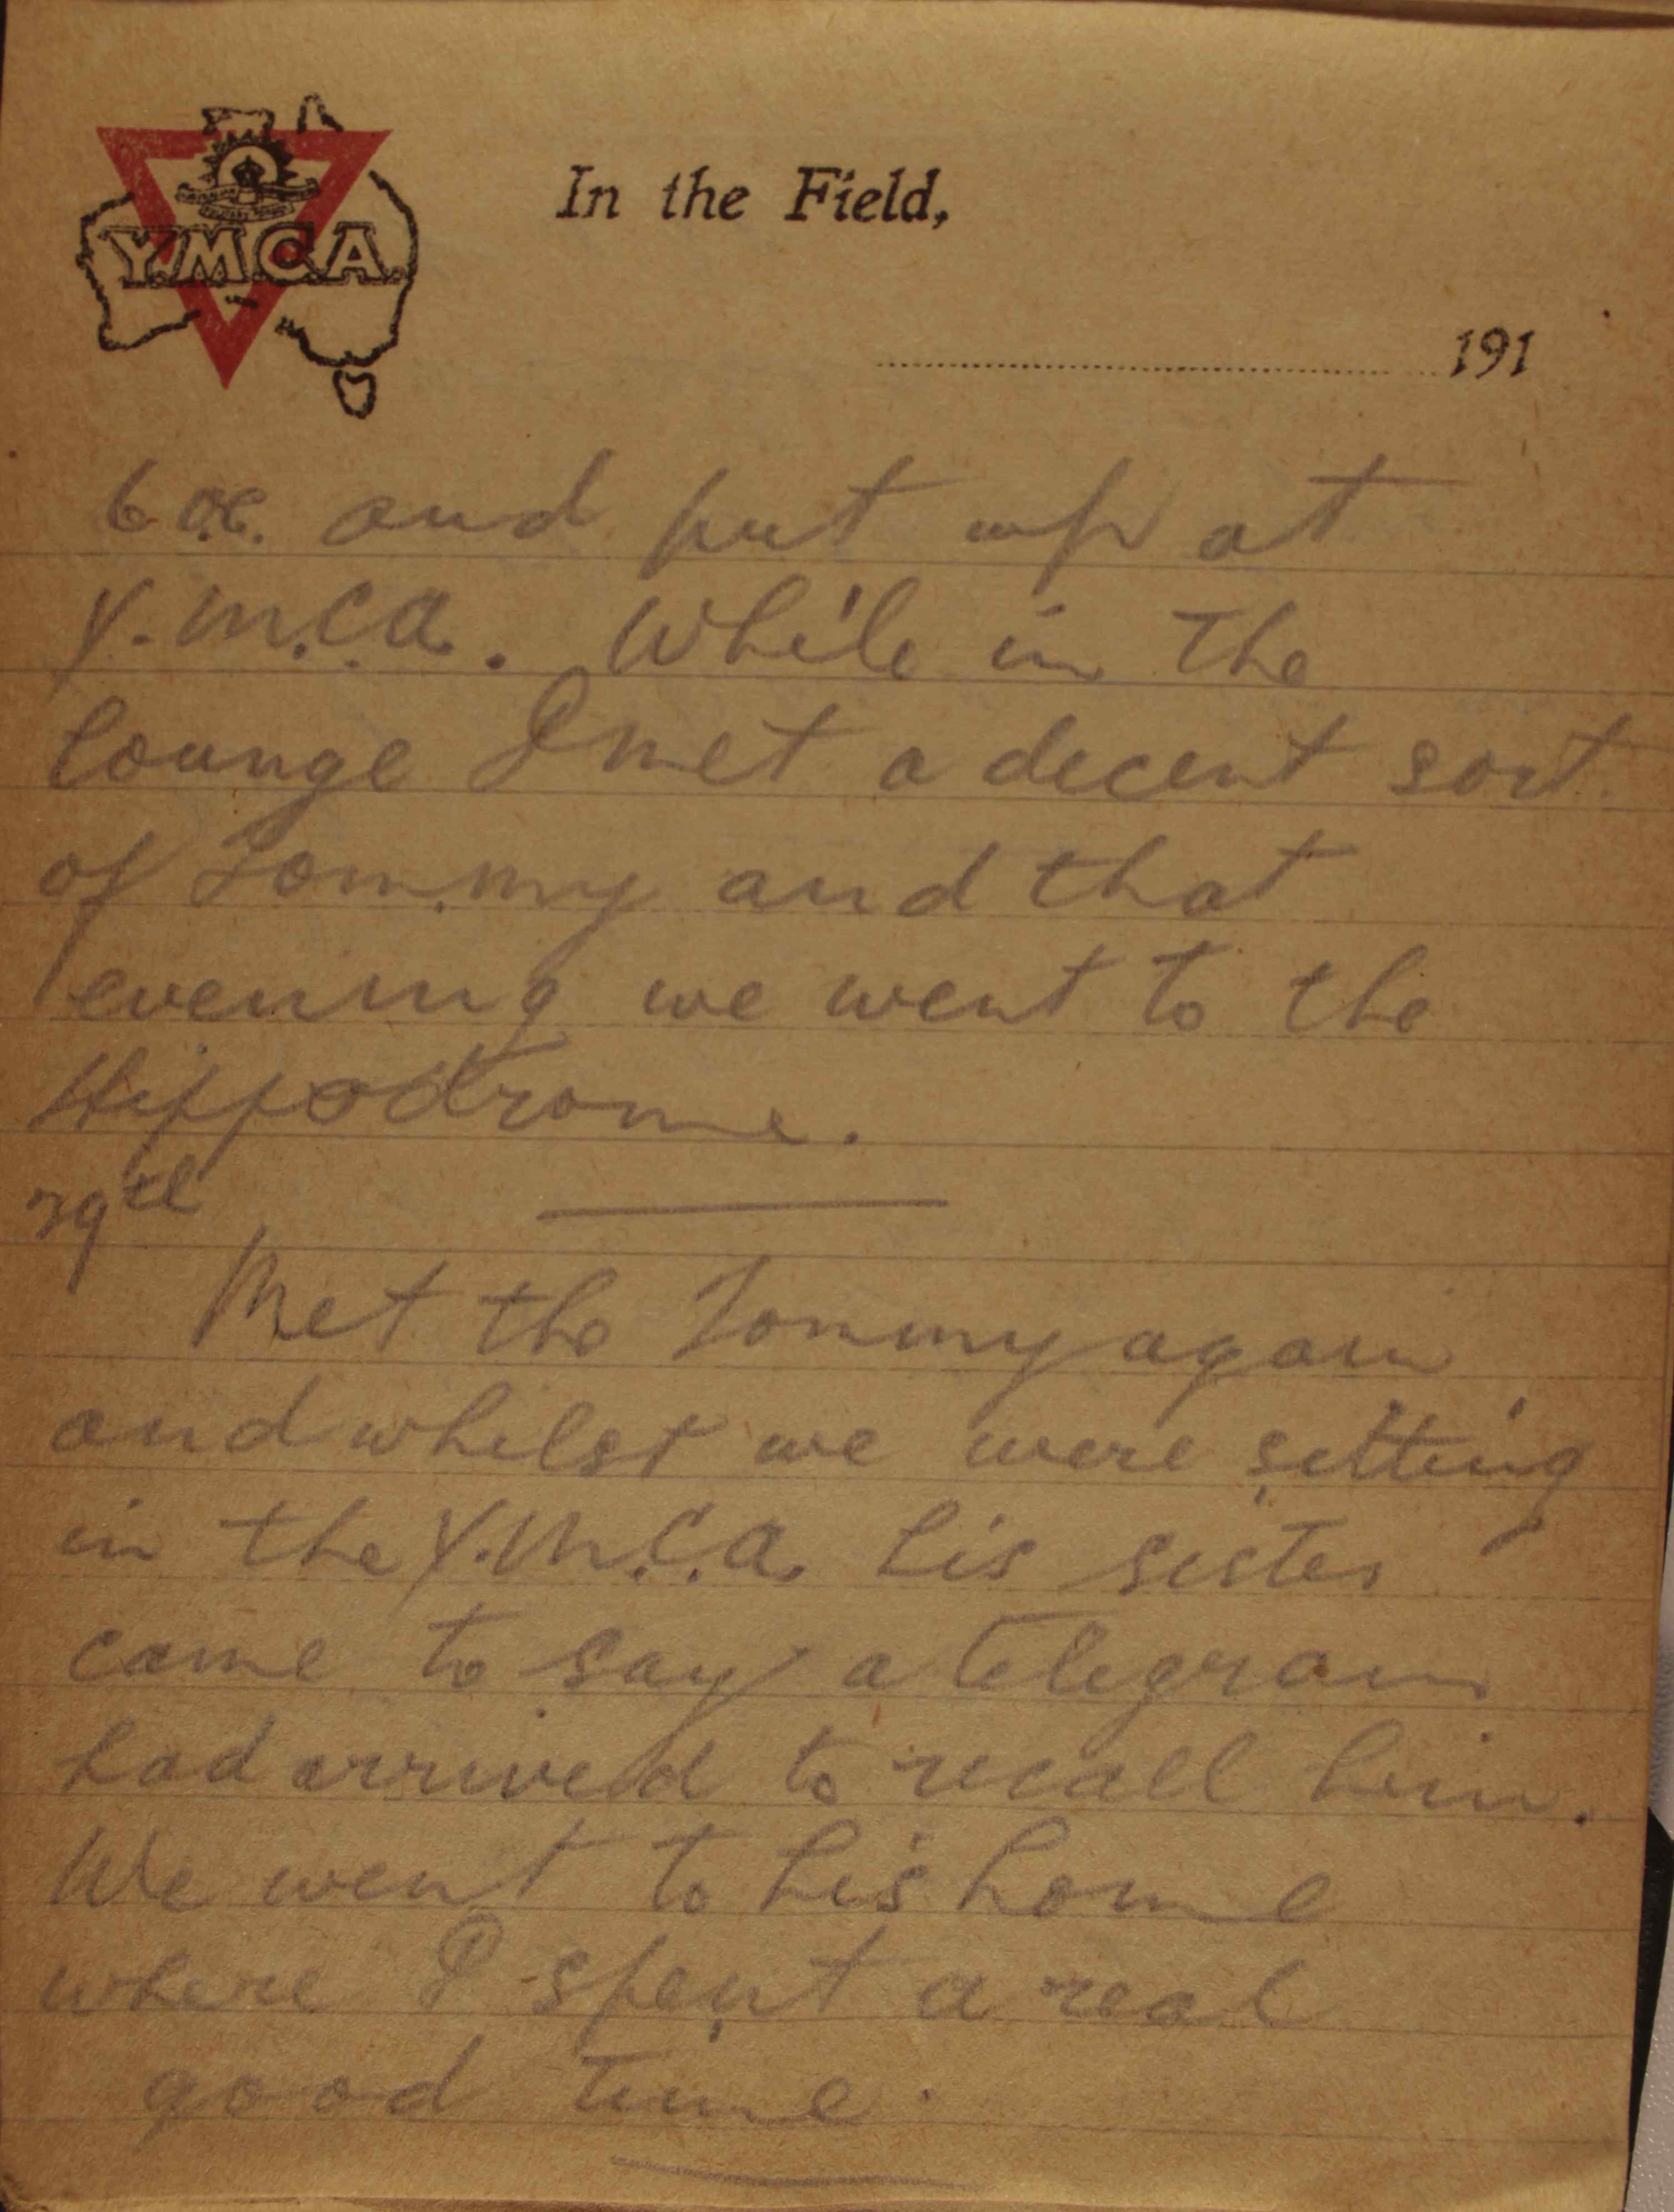 Y.M.C.A.
In the Field,
191
6 oc. and put up at
Y.M.C.A. While in the
lounge I met a decent sort
of Tommy and that
evening we went to the
Hippodrome.
29th
Met the Tommy again
and whilst we were sitting
in the Y.M.C.A. his sister
came to say a telegram
had arrived to recall him.
We went to his home
where I spent a real
good time.